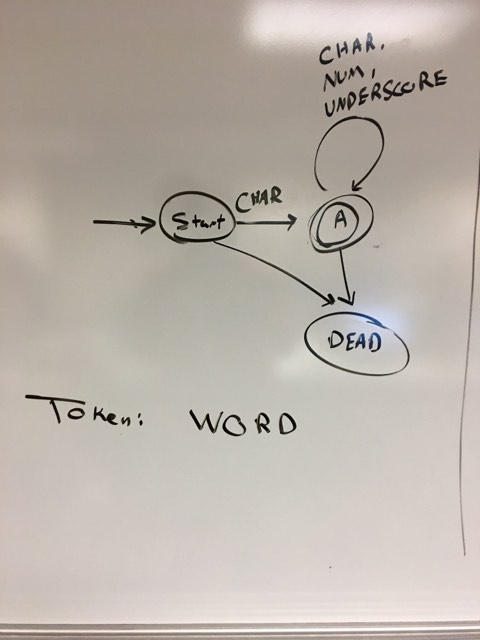 CHAR,
NUM,
UNDERSCORE
CHAR
Start
A
DEAD
Token: WORD